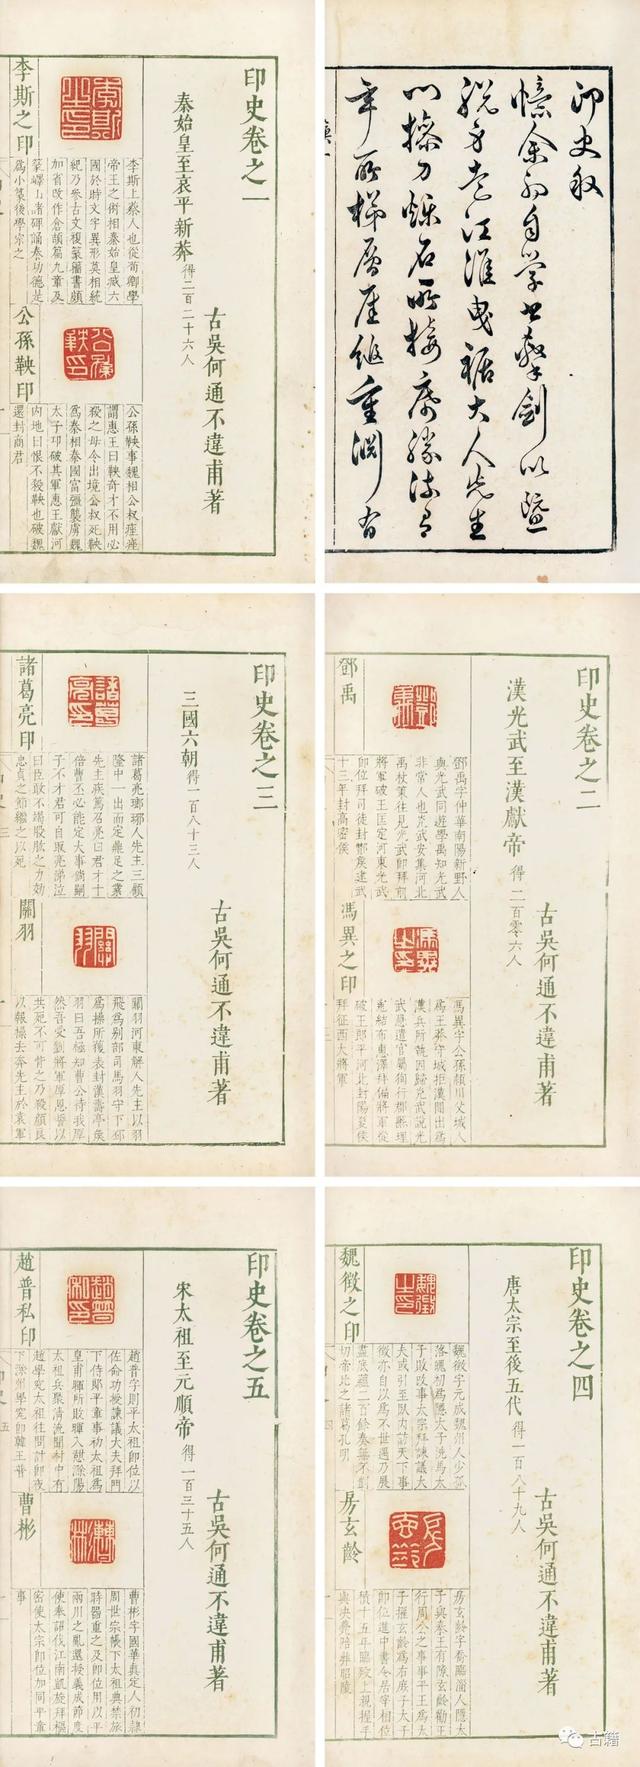 印史敘
憶余初自學書擊劍以暨
脫身走江淮曳裾大人先生
門操刀爍石所接
年所梯層崖縋重淵有
印史卷之一
秦始皇至哀平新莽 得二百二十六人
古吳何通不違甫著
李斯之印
李斯上蔡人也從荀卿學
帝王之術相秦始皇滅六
國於時文字異形莫相統
紀乃參古文複篆籀書頗
加省改作倉頡篇九章及
篆嶧山諸碑誦秦功德是
爲小篆後學宗之
公孫鞅印
公孫鞅事魏相公叔痤痤
謂惠王曰鞅奇才不用必
殺之毋令出境公叔死鞅
爲秦相秦國富彊襲虜魏
太子卬破其軍惠王獻河
內地曰恨不殺鞅也破魏
還封商君
印史卷之二
漢光武至漢獻帝 得二百零六人
古吳何通不違甫著
鄧禹
鄧禹字仲華南陽新野人
與光武同遊學禹知光武
非常人也光武安集河北
禹杖策往見光武卽拜前
將軍破王匡定河東光武
卽位拜司徒封酇矦建武
十三年封高密矦
馮異之印
馮異字公孫潁川父城人
爲王莽守城拒漢間出爲
漢兵所執因歸光武說光
武急遣官屬徇行郡縣理
冤結布惠澤拜偏將軍從
破王郎平河北封陽夏矦
拜征西大將軍
印史卷之三
三國六朝 得一百八十三人
古吳何通不違甫著
諸葛亮印
諸葛亮瑯琊人先主三顧
隆中一出而定鼎足之業
先主疾篤召亮曰君才十
倍曹丕必能定大事倘嗣
子不才君可自取亮涕泣
曰臣敢不竭股肱之力効
忠貞之節繼之以死
關羽
關羽河東解人先主以羽
飛爲別部司馬羽守下邳
爲操所獲表封漢壽亭矦
羽曰吾極知曹公待我厚
然吾受劉將軍厚恩誓以
共死不可背之乃殺顏良
以報操去奔先主於袁軍
印史卷之四
唐太宗至後五代 得一百八十九人
古吳何通不違甫著
魏徵之印
魏徵字元成魏州人少孤
落魄初爲隱太子洗馬太
子敗改事太宗拜諫議大
夫或引至臥內訪天下事
徵亦自以爲不世遇乃展
盡底蘊二百餘奏無不剴
切帝比之諸葛孔明
房玄齡
房玄齡字喬臨淄人隱太
子與秦王有隙玄齡勸王
行周公之事事平王爲太
子擢玄齡爲右庶子太子
卽位進中書令居宰相位
積十五年臨歿上親握手
與央薨陪葬昭陵
印史卷之五
宋太祖至元順帝 得一百三十五人
古吳何通不違甫著
趙普私印
趙普字則平太祖卽位以
佐命功授諫議大夫拜門
下侍郎平章事初太祖爲
皇甫暉所敗暉入憩滁陽
太祖兵聚清流聞村中有
趙學究太祖往問計卽夜
下滁州學究卽韓王普
曹彬
曹彬字國華真定人初隸
周世宗帳下太祖典禁旅
時器重之及卽位用以平
兩川之亂還授義成節度
使奉詔伐江南凱旋拜樞
密使太宗卽位加同平章
事
古籍